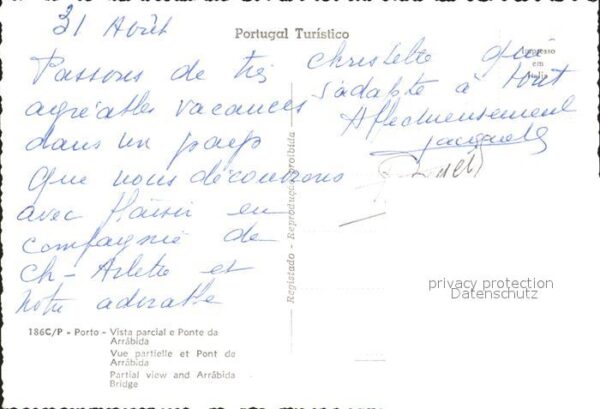 31 Août
Portugal Turístico
Impresso
em
Itália
Passons de très
agréables vacances
dans un pays
que nous découvrons
avec plaisir en
compagnie de
Ch-Arlette et
notre adorable
Christelle qui
s'adapte à tout
Affectueusement
Jacqueline
Registado - Reprodução proibida
privacy protection
Datenschutz
186C/P - Porto - Vista parcial e Ponte da
Arrábida
Vue partielle et Pont da
Arrábida
Partial view and Arrábida
Bridge